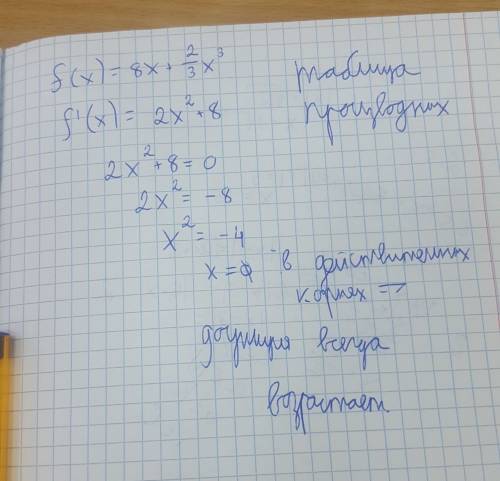 f(x) = 8x + 2/3 x³
таблица
f'(x) = 2x² + 8
производних
2x² + 8 = 0
2x² = -8
x² = -4
x = ∅ - в действительних
корнях =>
функция всегда
возрастает